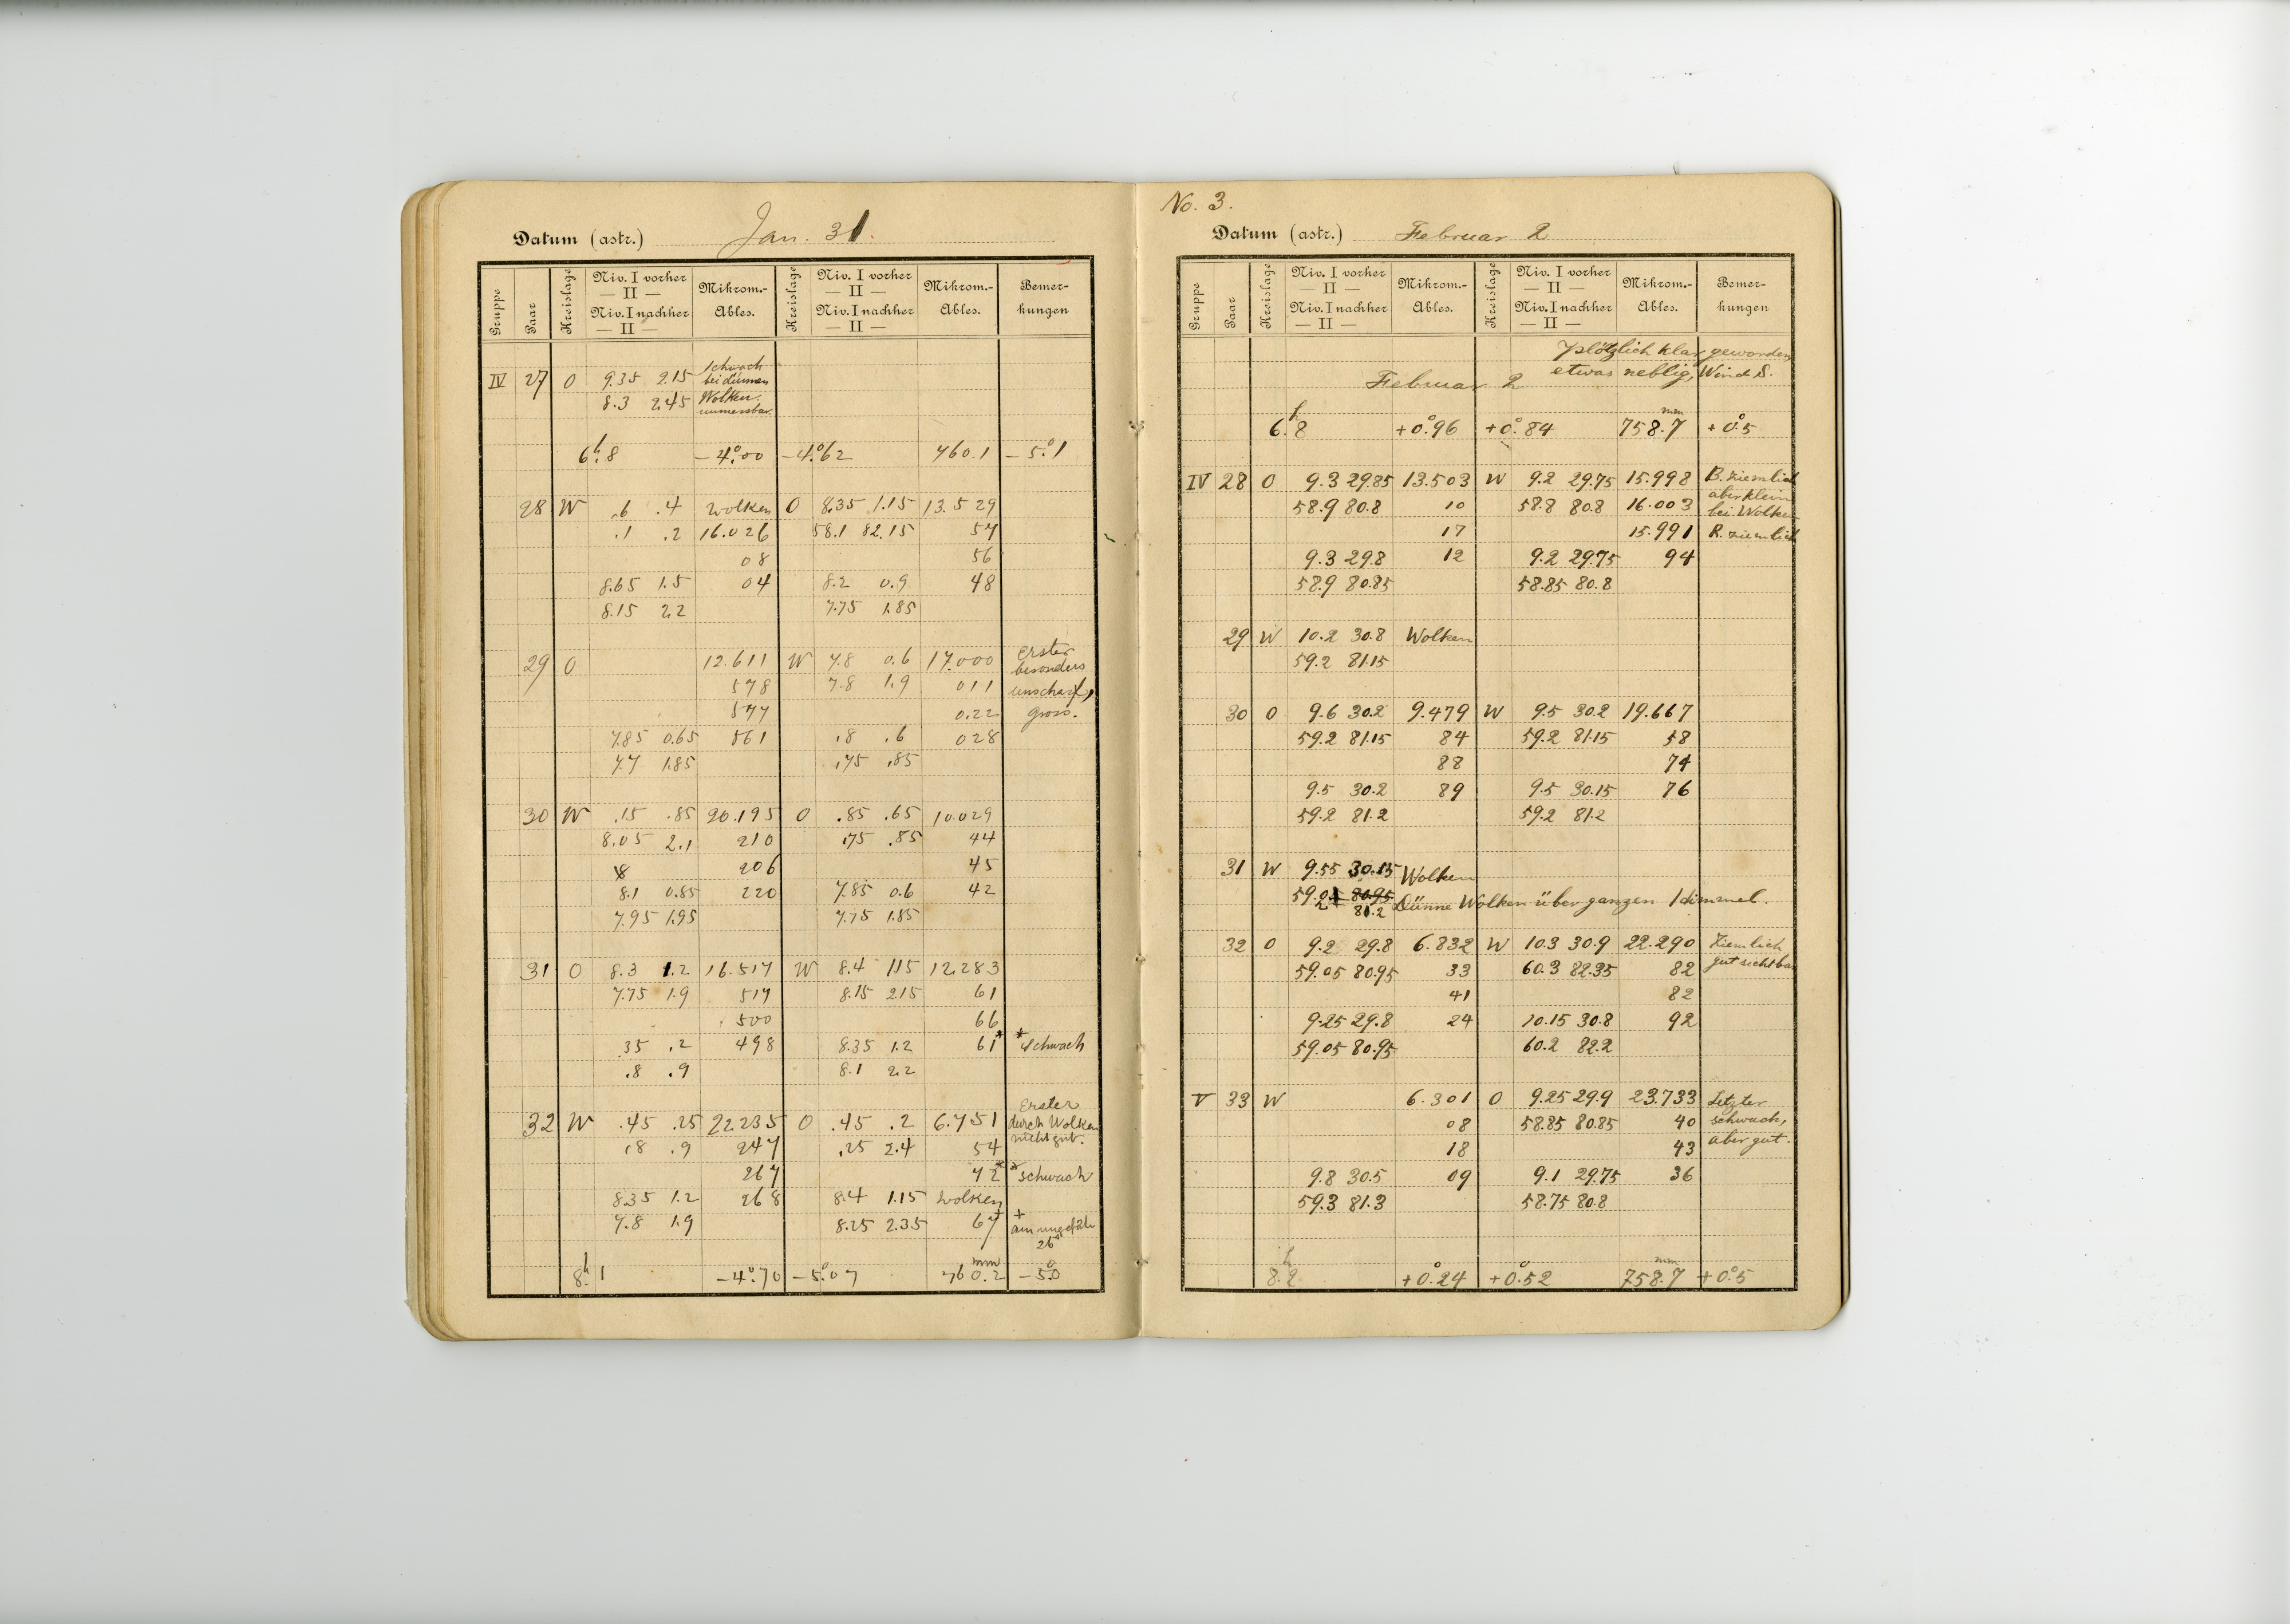 Datum (astr.) Jan. 31.
Gruppe Paar Kreislage Niv. I vorher — II — Niv. I nachher — II — Mikrom.-Ables. Kreislage Niv. I vorher — II — Niv. I nachher — II — Mikrom.-Ables. Bemer-kungen
IV 27 O 9.35 2.15 Schwach
bei dünnen
8.3 2.45 Wolken.
unmessbar.
6.h8 -4.°00 -4.°62 760.1 -5.°1
28 W .6 .4 Wolken O 8.35 1.15 13.529
.1 .2 16.026 58.1 82.15 57
08 56
8.65 1.5 04 8.2 0.9 48
8.15 2.2 7.75 1.85
29 O 12.611 W 7.8 0.6 17.000 Erster
besonders
578 7.8 1.9 011 unscharf,
577 0.22 gross.
7.85 0.65 561 .8 .6 028
7.7 1.85 .75 .85
30 W .15 .85 20.195 O .85 .65 10.029
8.05 2.1 210 .75 .85 44
206 45
8.1 0.85 220 7.85 0.6 42
7.95 1.95 7.75 1.85
31 O 8.3 1.2 16.517 W 8.4 1.15 12.283
7.75 1.9 517 8.15 2.15 61
500 66
.35 .2 498 8.35 1.2 61* *schwach
.8 .9 8.1 2.2
32 W .45 .25 22.235 O .45 .2 6.751 Erster
durch Wolken
nicht gut.
.8 .9 247 .25 2.4 54
267 72* *schwach
8.35 1.2 268 8.4 1.15 Wolken
7.8 1.9 8.25 2.35 67+ +
26
8.h1 -4.°70 -5.°07 760.2mm -5.°0
No. 3.
Datum (astr.) Februar 2
Gruppe Paar Kreislage Niv. I vorher — II — Niv. I nachher — II — Mikrom.-Ables. Kreislage Niv. I vorher — II — Niv. I nachher — II — Mikrom.-Ables. Bemer-kungen
Plötzlich klar geworden
etwas neblig, Wind S.
Februar 2
6.h8 +0.°96 +0.°84 758.7mm +0.°5
IV 28 O 9.3 29.85 13.503 W 9.2 29.75 15.998 B. ziemlich
aber klein
58.9 80.8 10 58.8 80.8 16.003 bei Wolken
17 15.991 R. ziemlich
9.3 29.8 12 9.2 29.75 94
58.9 80.85 58.85 80.8
29 W 10.2 30.8 Wolken
59.2 81.15
30 O 9.6 30.2 9.479 W 9.5 30.2 19.667
59.2 81.15 84 59.2 81.15 58
88 74
9.5 30.2 89 9.5 30.15 76
59.2 81.2 59.2 81.2
31 W 9.55 30.15 Wolken
59.0 80.95 Dünne Wolken über ganzen Himmel.
2 81.2
32 O 9.2 29.8 6.832 W 10.3 30.9 22.290 Ziemlich
gut sichtbar
59.05 80.95 33 60.3 82.35 82
41 82
9.25 29.8 24 10.15 30.8 92
59.05 80.95 60.2 82.2
V 33 W 6.301 O 9.25 29.9 23.733 Letzter
08 58.85 80.85 40 schwach,
18 43 aber gut.
9.8 30.5 09 9.1 29.75 36
59.3 81.3 58.75 80.8
8.h2 +0.°24 +0.°52 758.7mm +0.°5